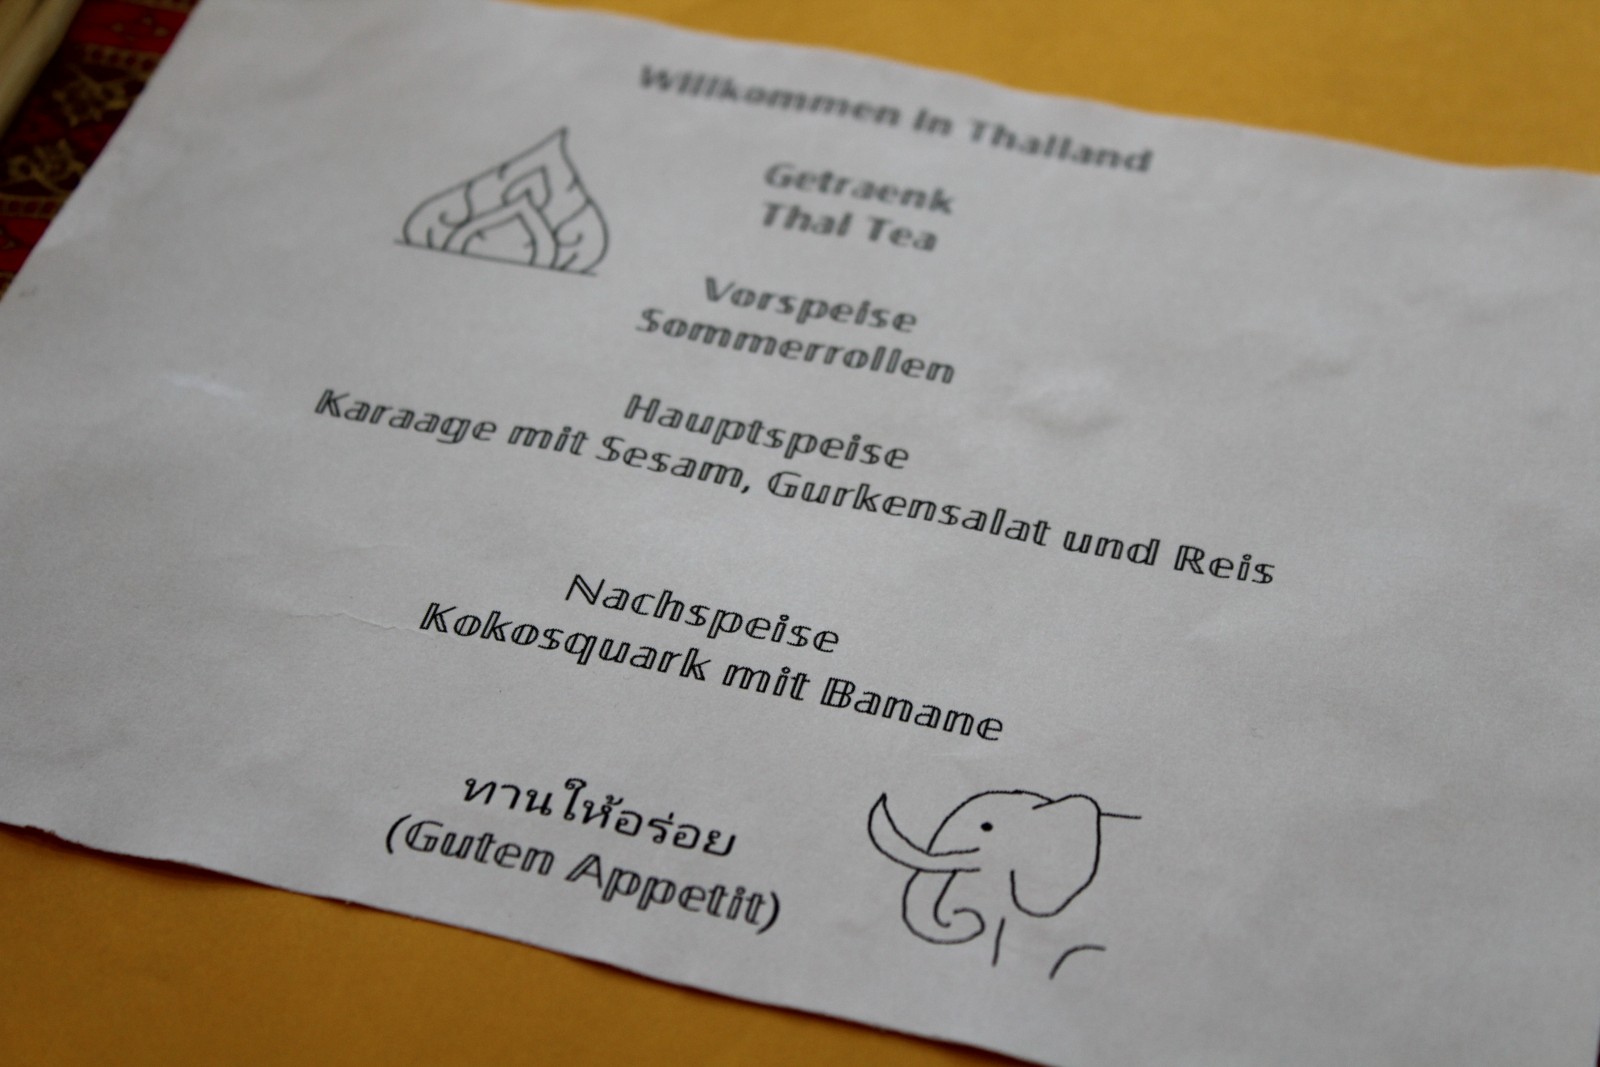 Willkommen in Thailand
Getraenk
Thai Tea
Vorspeise
Sommerrollen
Hauptspeise
Karaage mit Sesam, Gurkensalat und Reis
Nachspeise
Kokosquark mit Banane
ทานให้อร่อย
(Guten Appetit)